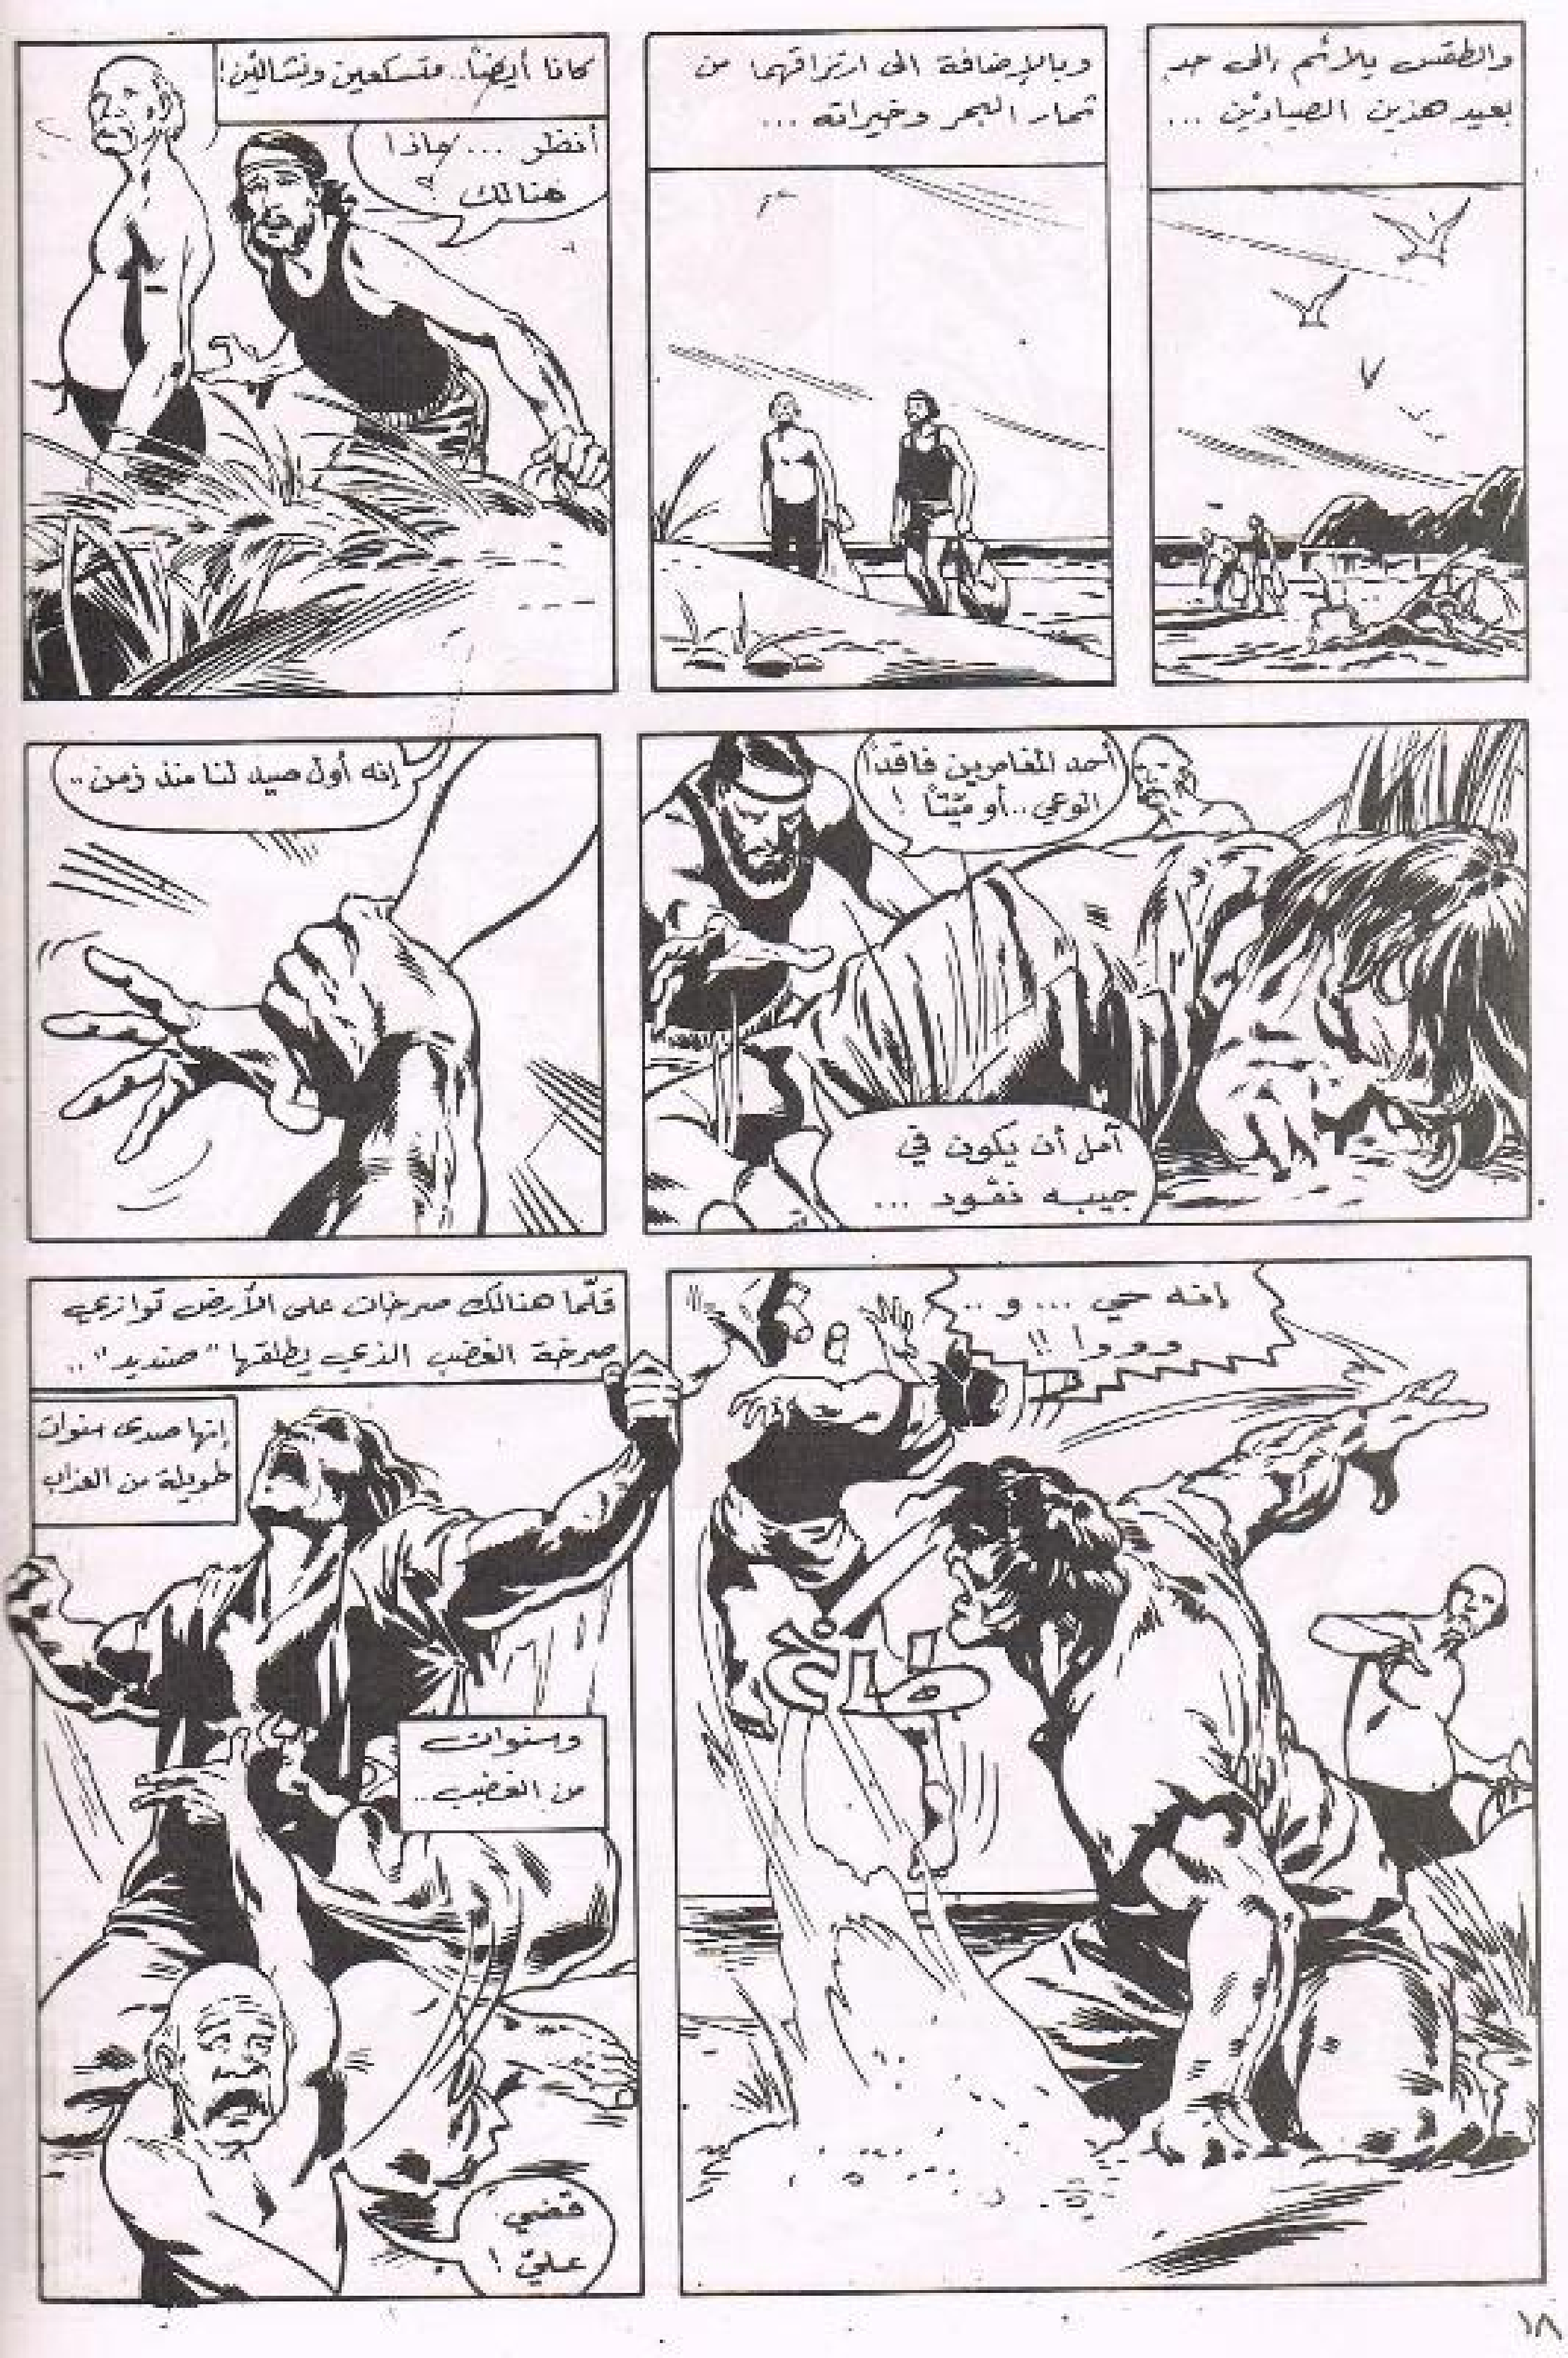 والطقس يلائم إلى حدٍ
بعيد هذين الصيادَين ...
وبالإضافة الى ارتزاقهما من
ثمار البحر وخيراته ...
كانا أيضاً.. متسكعين ونشالَين!
أنظر ... ماذا
هنالك ؟
أحد المغامرين فاقداً
الوعي.. أو ميّتاً !
آمل أن يكون في
جيبه نقود ...
إنه أول صيد لنا منذ زمن..
إنه حي ... و ..
وووا !!
طاخ
قلّما هنالك صرخات على الأرض توازي
صرخة الغضب الذي يطلقها "صنديد"..
إنها صدى سنوات
طويلة من العذاب
وسنوات
من الغضب..
قضي
عليّ !
١٨